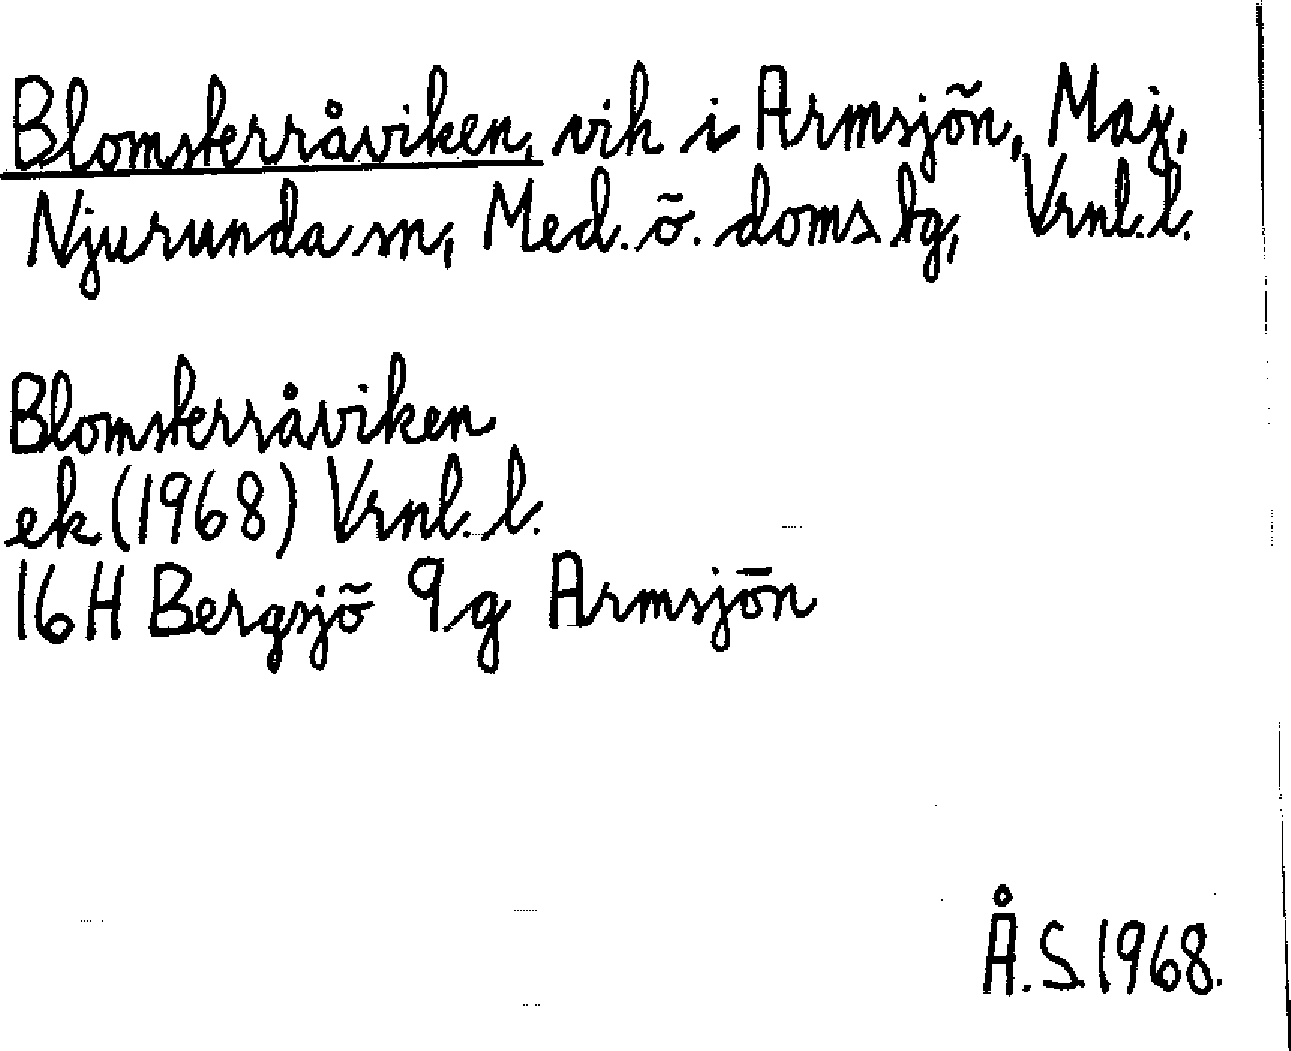 Blomsterråviken, vik i Armsjön, Maj,
Njurunda sn, Med. ö. doms. tg, Vrnl. l.
Blomsterråviken
ek (1968) Vrnl. l.
16H Bergsjö 9g Armsjön
Å.S. 1968.